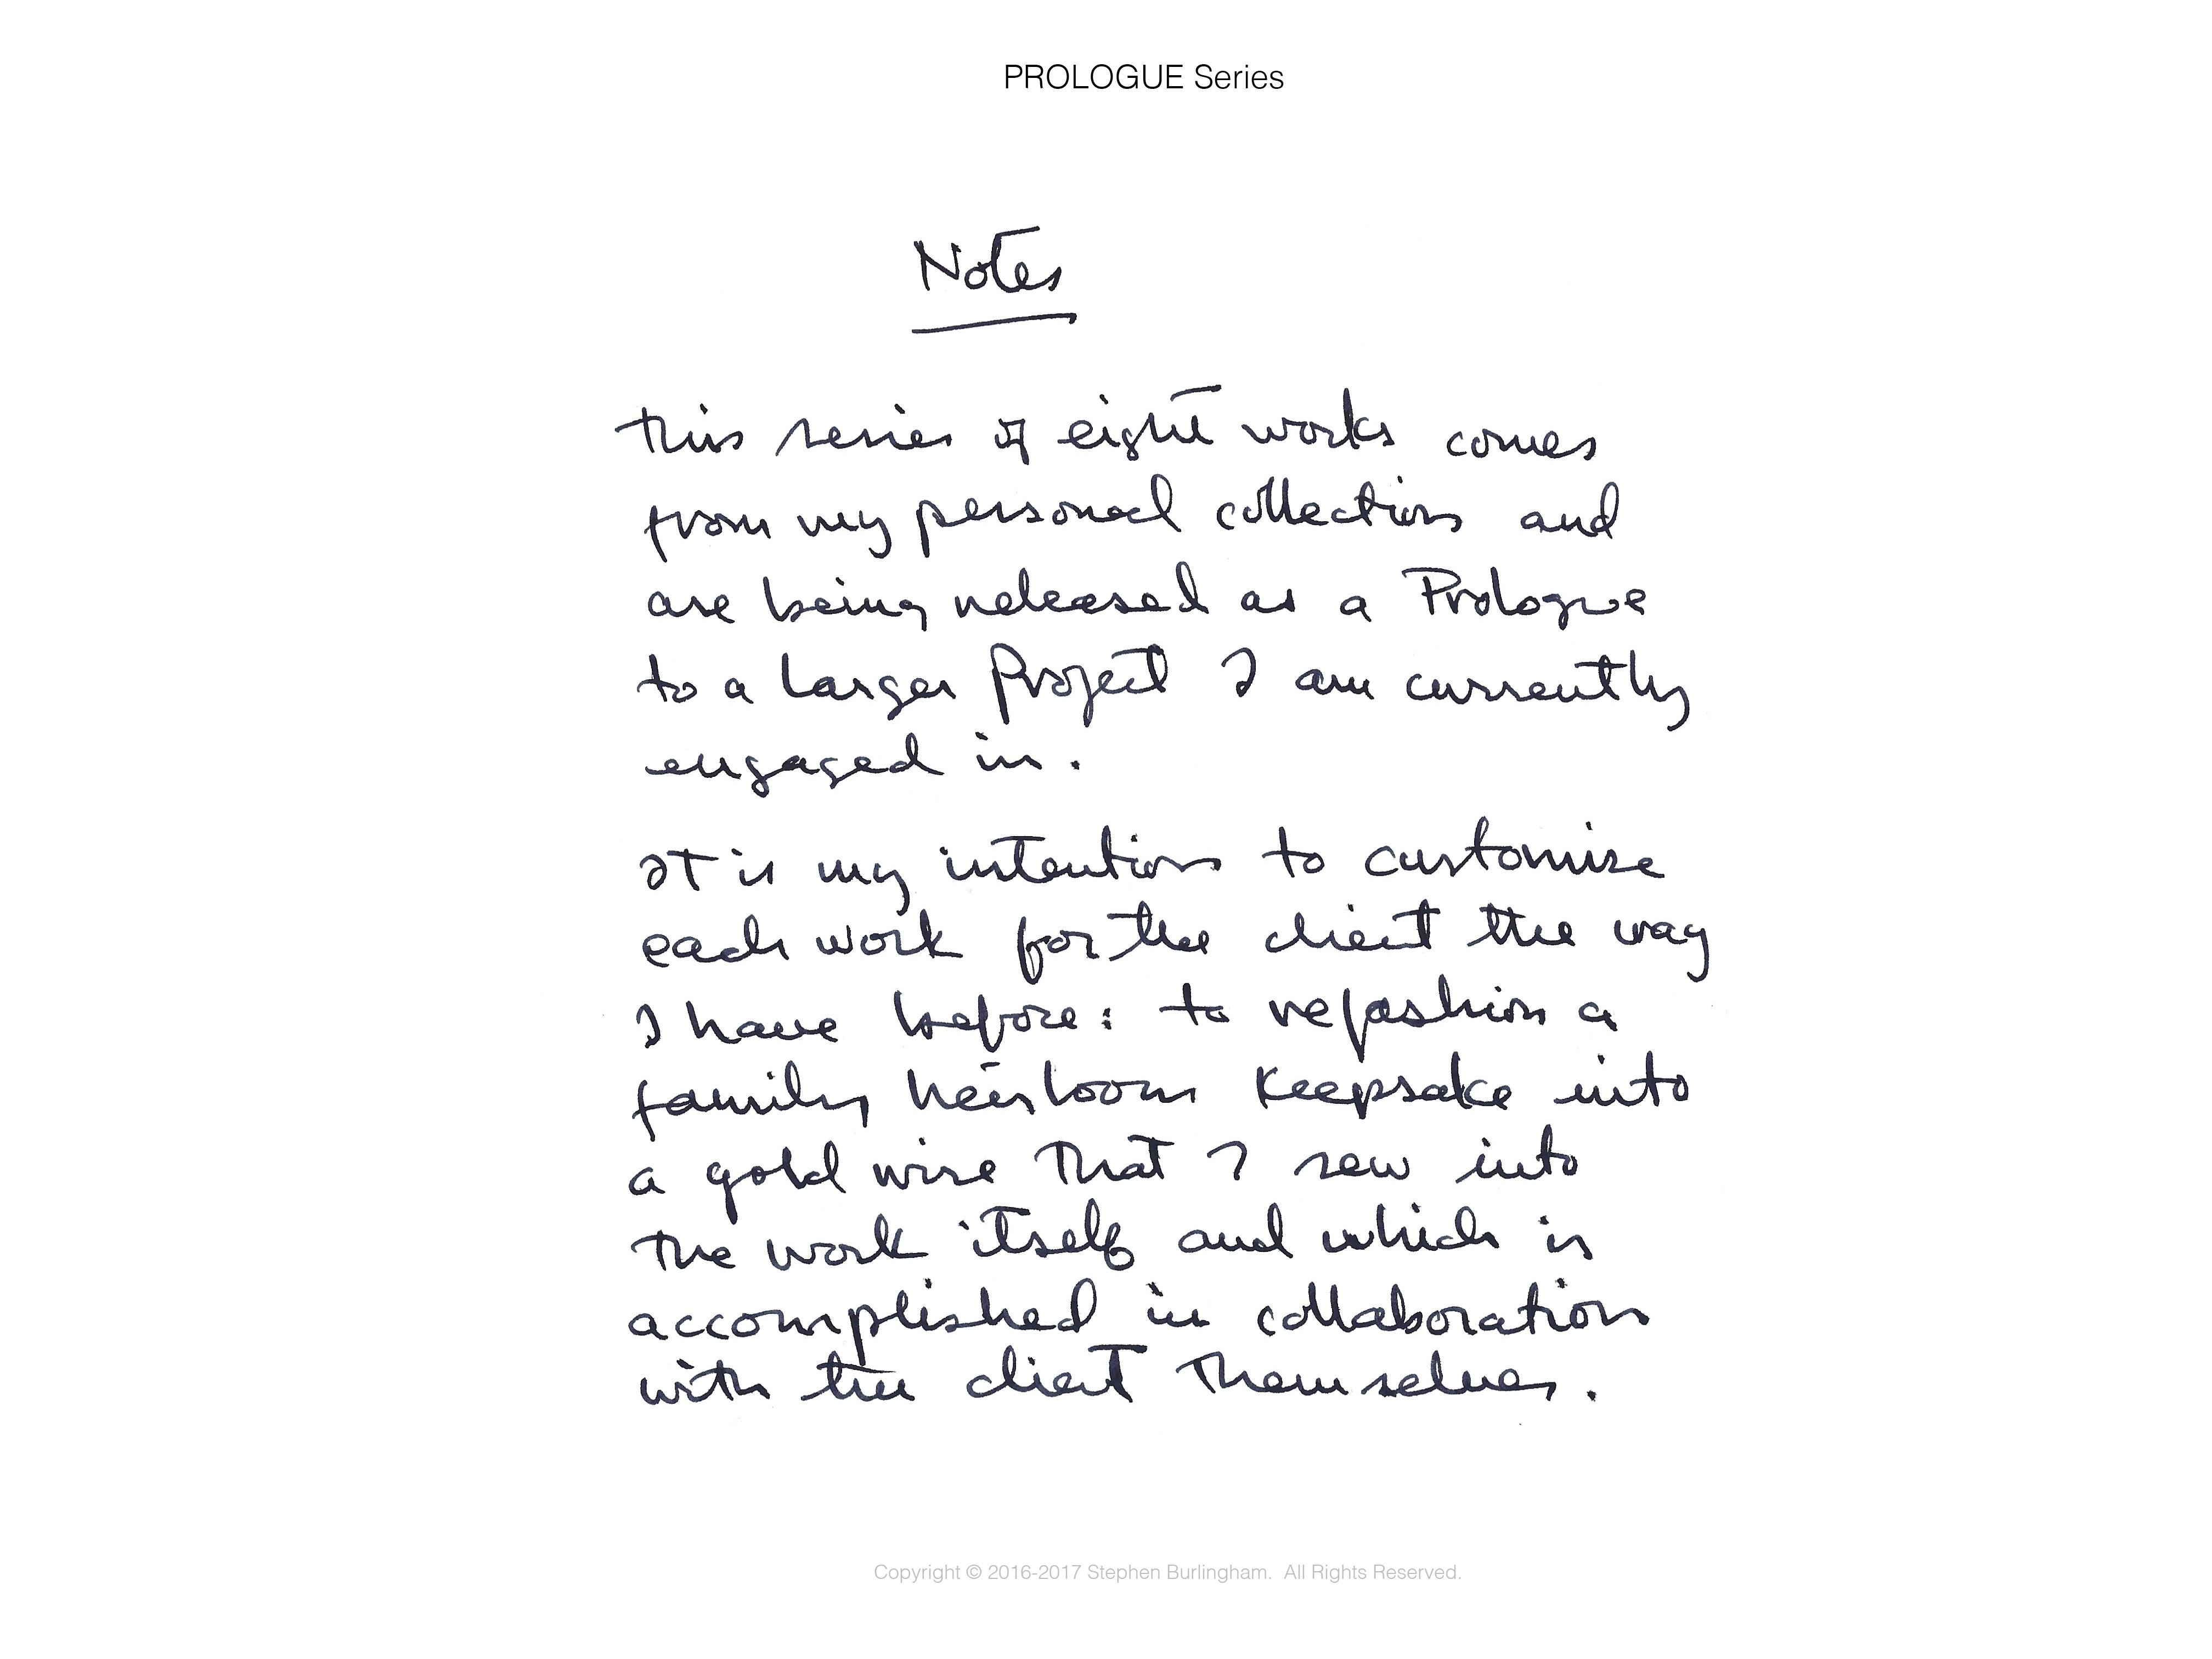 PROLOGUE Series
Notes
this series of eight works comes
from my personal collection and
are being released as a Prologue
to a larger Project I am currently
engaged in.
It is my intention to customize
each work for the client the way
I have before: to refashion a
family heirloom keepsake into
a gold wire that I sew into
the work itself and which is
accomplished in collaboration
with the client themselves.
Copyright © 2016-2017 Stephen Burlingham. All Rights Reserved.